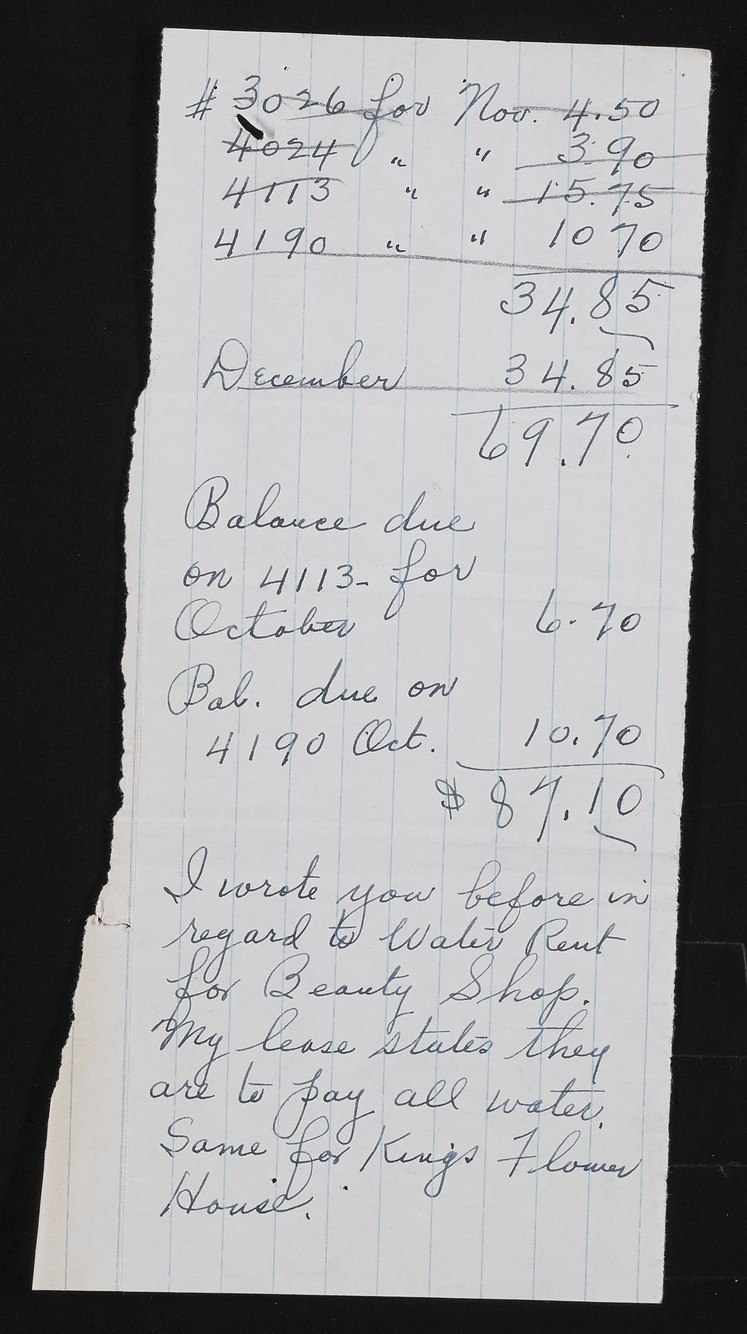 # 3026 for Nov. 4.50
4024 " " 3.90
4113 " " 15.75
4190 " " 10 70
34.85
December 34.85
69.70
Balance due
on 4113- for
October 6.70
Bal. due on
4190 Oct. 10.70
$ 87.10
I wrote you before in
regard to Water Rent
for Beauty Shop.
My lease states they
are to pay all water.
Same for Kings Flower
House.